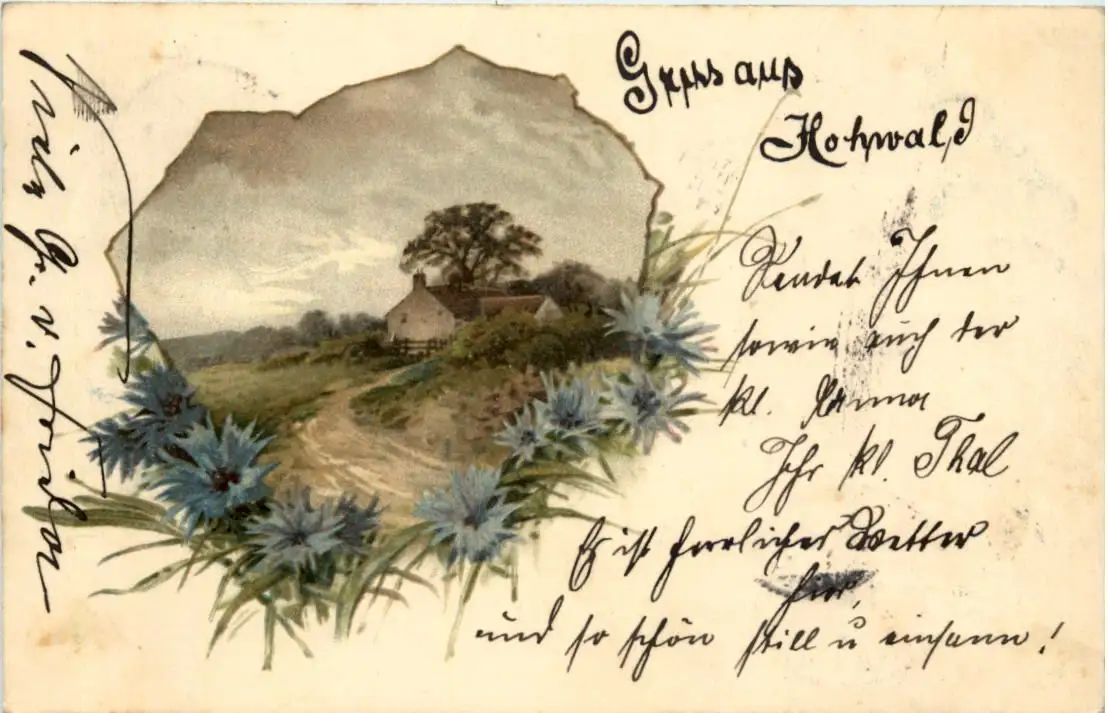 Gruss aus
Hohwald
Sendet Ihnen
sowie auch der
kl.
Ihr kl Thal
Es ist herrliches Wetter
hier,
und so schön still u einsam!
viele Gr. v.